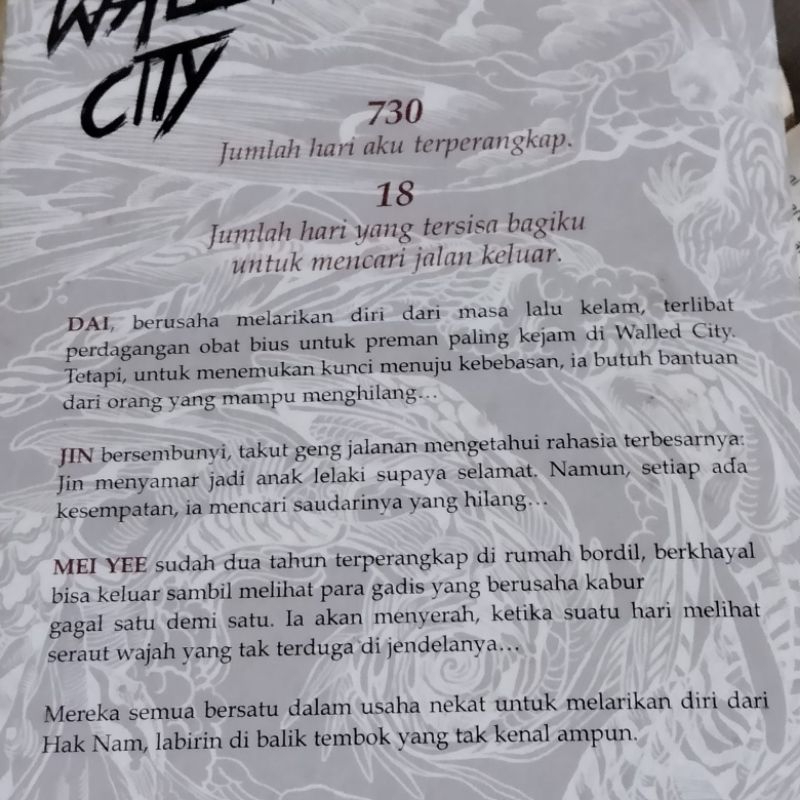 WALLED
CITY
730
Jumlah hari aku terperangkap.
18
Jumlah hari yang tersisa bagiku
untuk mencari jalan keluar.
DAI, berusaha melarikan diri dari masa lalu kelam, terlibat
perdagangan obat bius untuk preman paling kejam di Walled City.
Tetapi, untuk menemukan kunci menuju kebebasan, ia butuh bantuan
dari orang yang mampu menghilang...
JIN bersembunyi, takut geng jalanan mengetahui rahasia terbesarnya:
Jin menyamar jadi anak lelaki supaya selamat. Namun, setiap ada
kesempatan, ia mencari saudarinya yang hilang...
MEI YEE sudah dua tahun terperangkap di rumah bordil, berkhayal
bisa keluar sambil melihat para gadis yang berusaha kabur
gagal satu demi satu. Ia akan menyerah, ketika suatu hari melihat
seraut wajah yang tak terduga di jendelanya...
Mereka semua bersatu dalam usaha nekat untuk melarikan diri dari
Hak Nam, labirin di balik tembok yang tak kenal ampun.